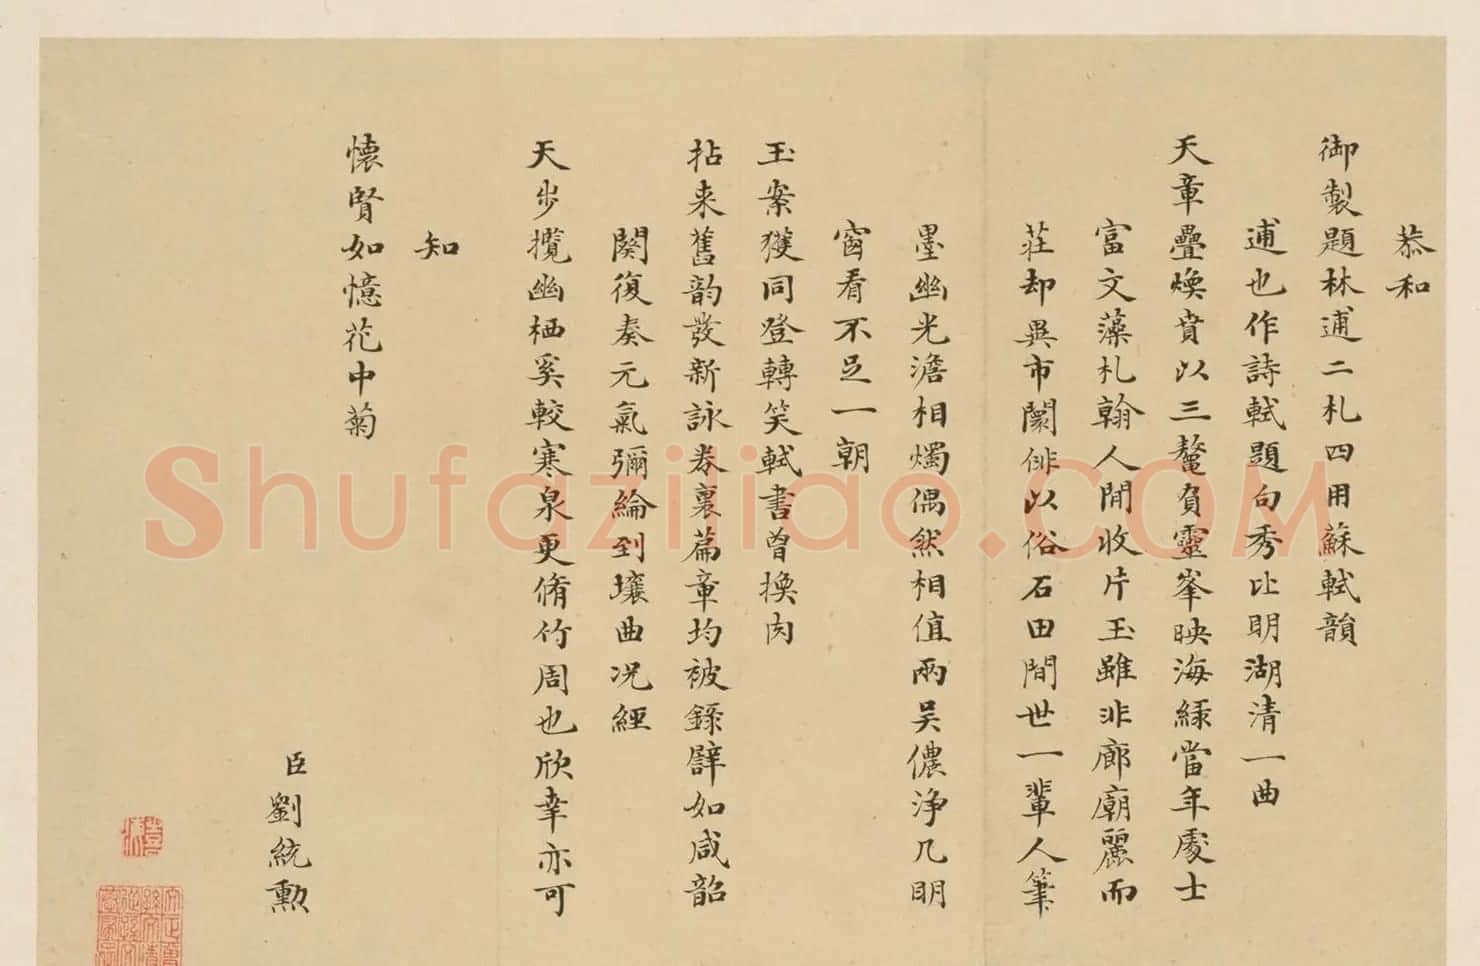 恭和
御製題林逋二札四用蘇軾韻
逋也作詩軾題句秀比明湖清一曲
天章疊煥賁以三鼇負靈峯映海緑當年處士
富文藻札翰人間收片玉雖非廊廟麗而
莊却異市闤俳以俗石田間世一輩人筆
墨幽光澹相燭偶然相值兩吴儂浄几明
窗看不足一朝
玉案獲同登轉笑軾書曾換肉
拈来舊韵發新詠卷裏篇章均被錄辟如咸韶
闋復奏元氣彌綸到壤曲况經
天步攬幽栖奚較寒泉更脩竹周也欣幸亦可
知
懷賢如憶花中菊
臣劉統勲
Shufaziliao.COM